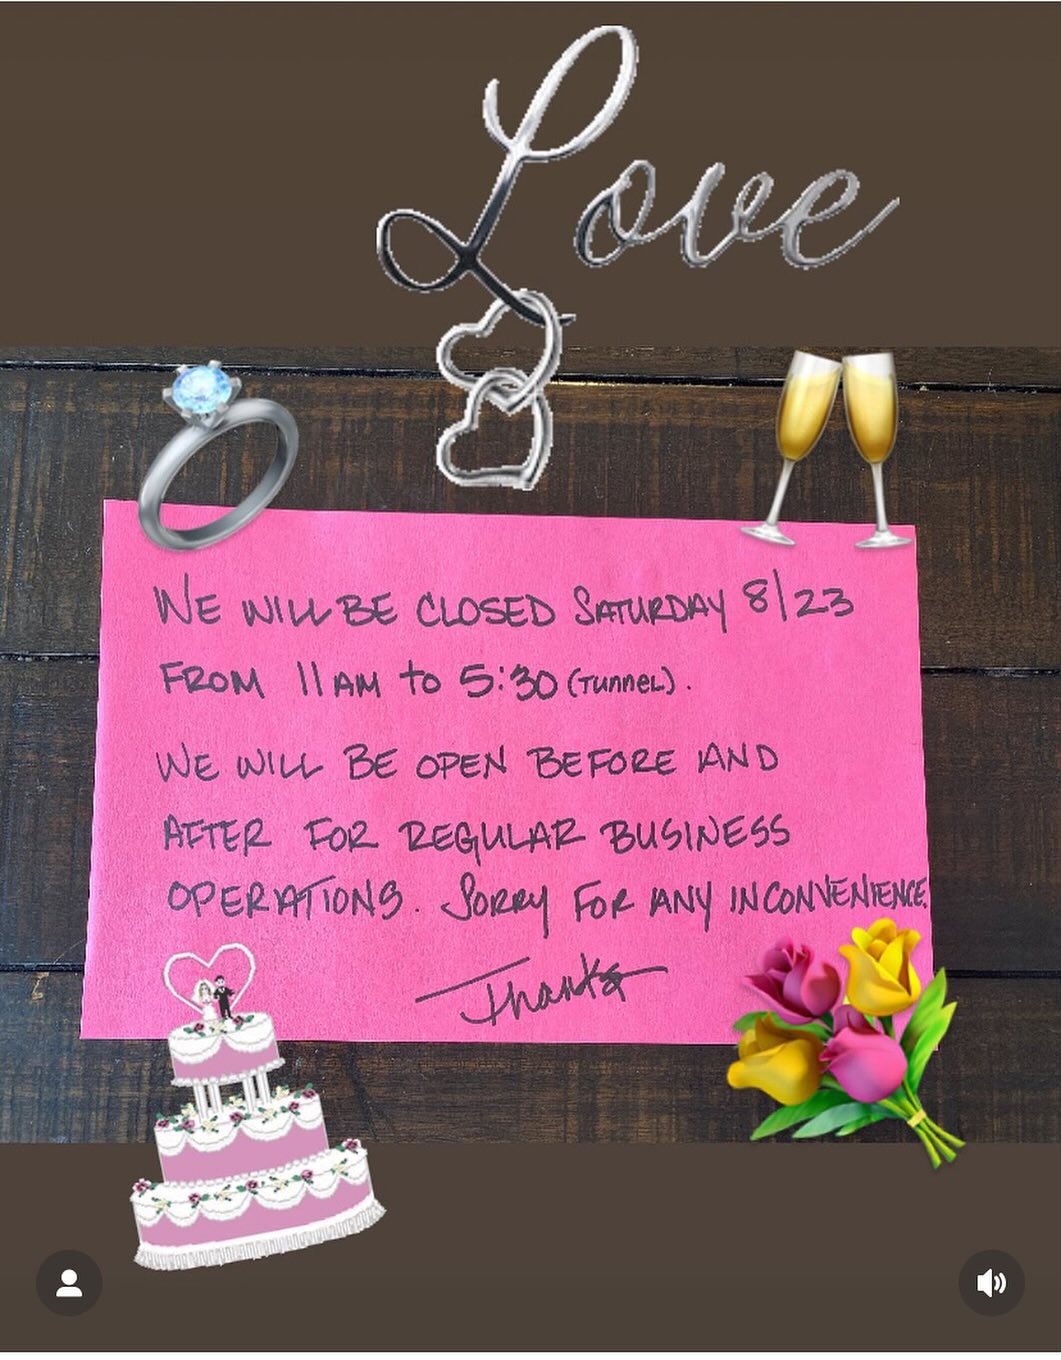 Love
WE WILL BE CLOSED SATURDAY 8/23
FROM 11AM to 5:30 (TUNNEL).
WE WILL BE OPEN BEFORE AND
AFTER FOR REGULAR BUSINESS
OPERATIONS. SORRY FOR ANY INCONVENIENCE.
Thanks